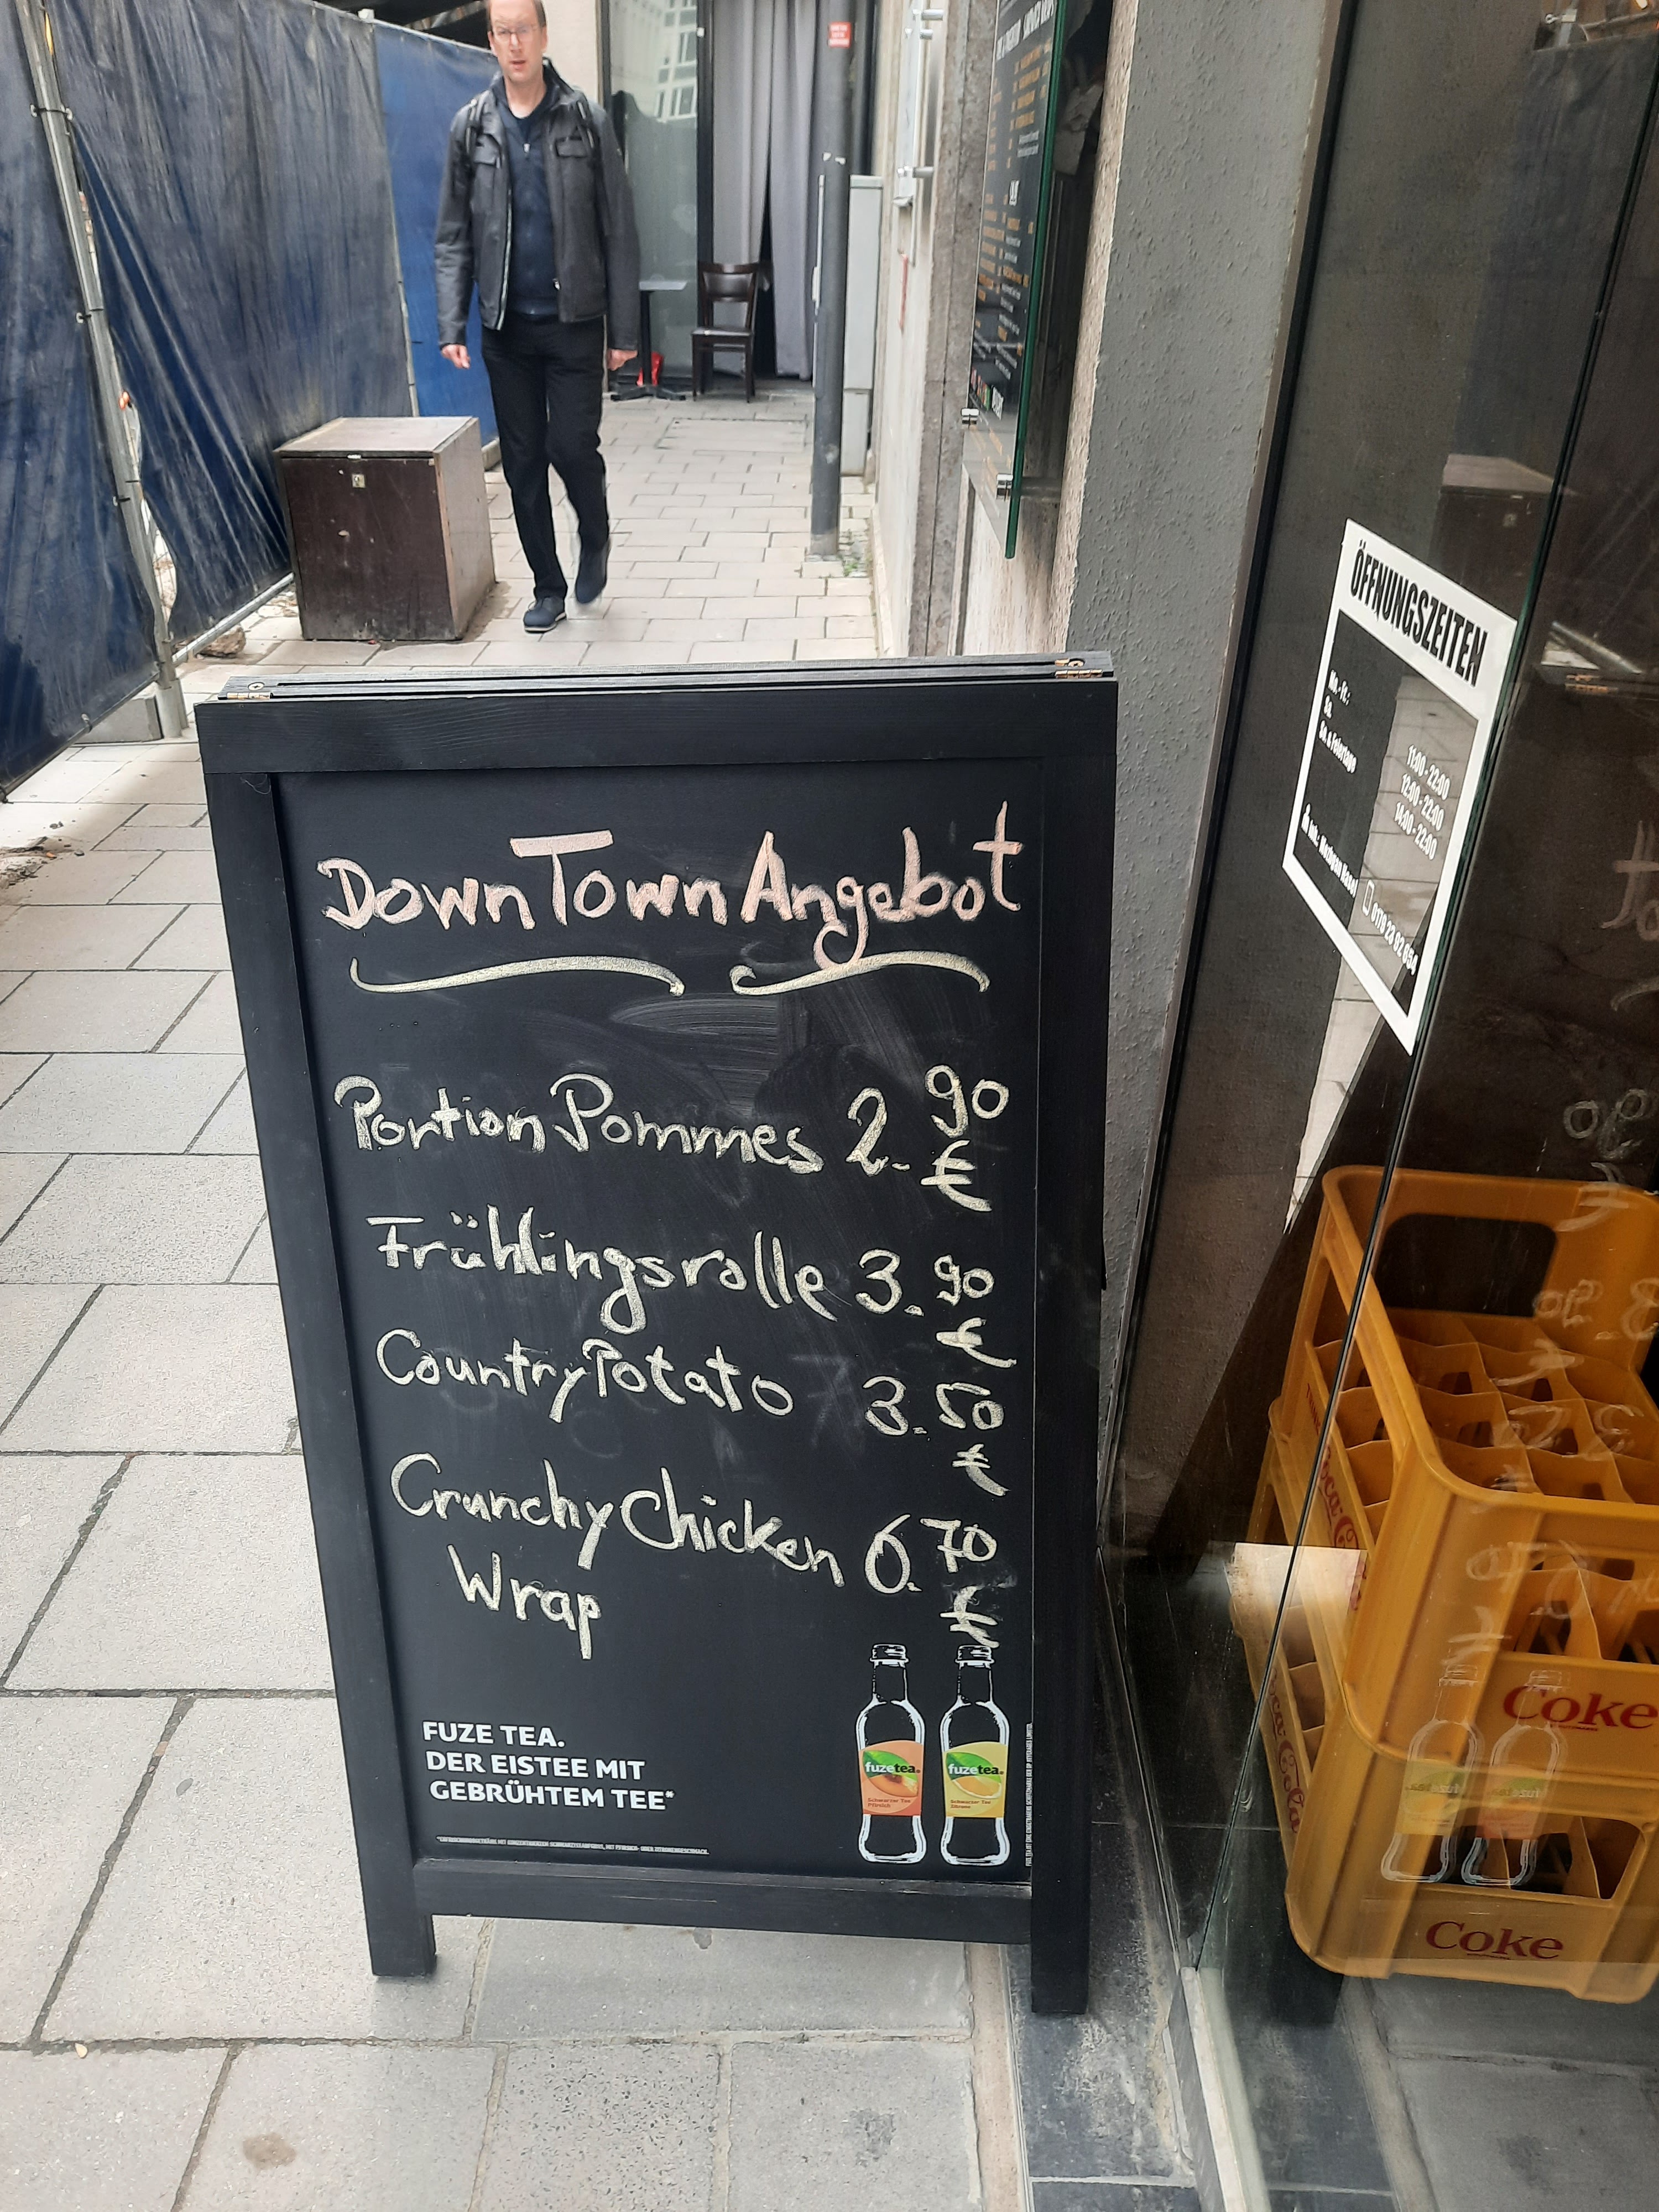 DownTown Angebot
Portion Pommes 2.90 €
Frühlingsrolle 3.90 €
Country Potato 3.50 €
Crunchy Chicken 6.70 €
Wrap
FUZE TEA.
DER EISTEE MIT
GEBRÜHTEM TEE*
fuzetea
Schwarzer Tee
Pfirsich
fuzetea
Schwarzer Tee
Zitrone
ÖFFNUNGSZEITEN
Mo. - Fr.: 11:00 - 22:00
Sa. 12:00 - 22:00
So. & Feiertage 14:00 - 22:00
Coke
Coke